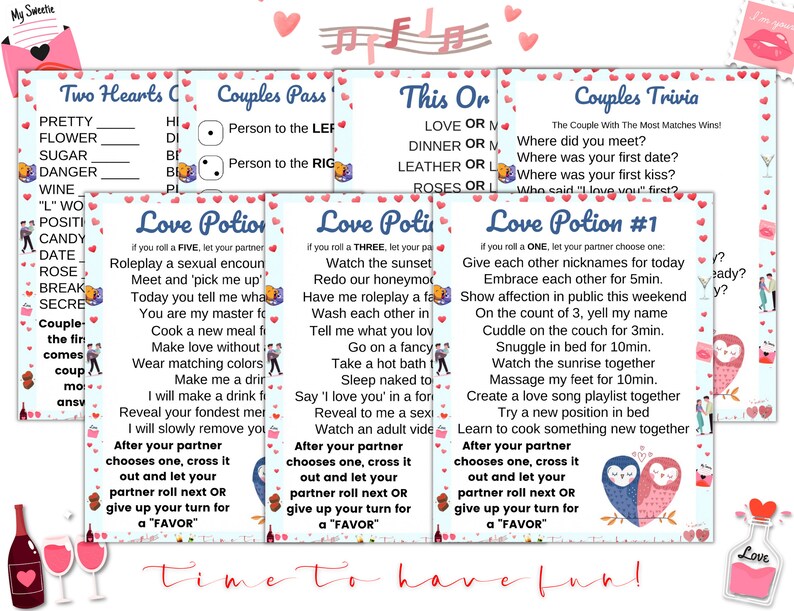 My Sweetie
I'm yours
Two Hearts
PRETTY _____
FLOWER _____
SUGAR _____
DANGER _____
WINE
"L" WO
POSITI
CANDY
DATE
ROSE
BREAK
SECRE
Couple-
the firs
comes
coup
mos
answ
Couples Pass
Person to the LEF
Person to the RIG
This Or
LOVE OR M
DINNER OR M
LEATHER OR L
ROSES OR
Couples Trivia
The Couple With The Most Matches Wins!
Where did you meet?
Where was your first date?
Where was your first kiss?
Who said "I love you" first?
y?
eady?
y?
Love Potion
if you roll a FIVE, let your partner
Roleplay a sexual encoun
Meet and 'pick me up'
Today you tell me wha
You are my master fo
Cook a new meal fo
Make love without
Wear matching colors
Make me a drin
I will make a drink f
Reveal your fondest mer
I will slowly remove you
After your partner
chooses one, cross it
out and let your
partner roll next OR
give up your turn for
a "FAVOR"
Love Potio
if you roll a THREE, let your partner
Watch the sunset
Redo our honeymoo
Have me roleplay a fa
Wash each other in
Tell me what you lov
Go on a fancy
Take a hot bath t
Sleep naked to
Say 'I love you' in a fore
Reveal to me a sexu
Watch an adult vide
After your partner
chooses one, cross it
out and let your
partner roll next OR
give up your turn for
a "FAVOR"
Love Potion #1
if you roll a ONE, let your partner choose one:
Give each other nicknames for today
Embrace each other for 5min.
Show affection in public this weekend
On the count of 3, yell my name
Cuddle on the couch for 3min.
Snuggle in bed for 10min.
Watch the sunrise together
Massage my feet for 10min.
Create a love song playlist together
Try a new position in bed
Learn to cook something new together
After your partner
chooses one, cross it
out and let your
partner roll next OR
give up your turn for
a "FAVOR"
Love
time to have fun!